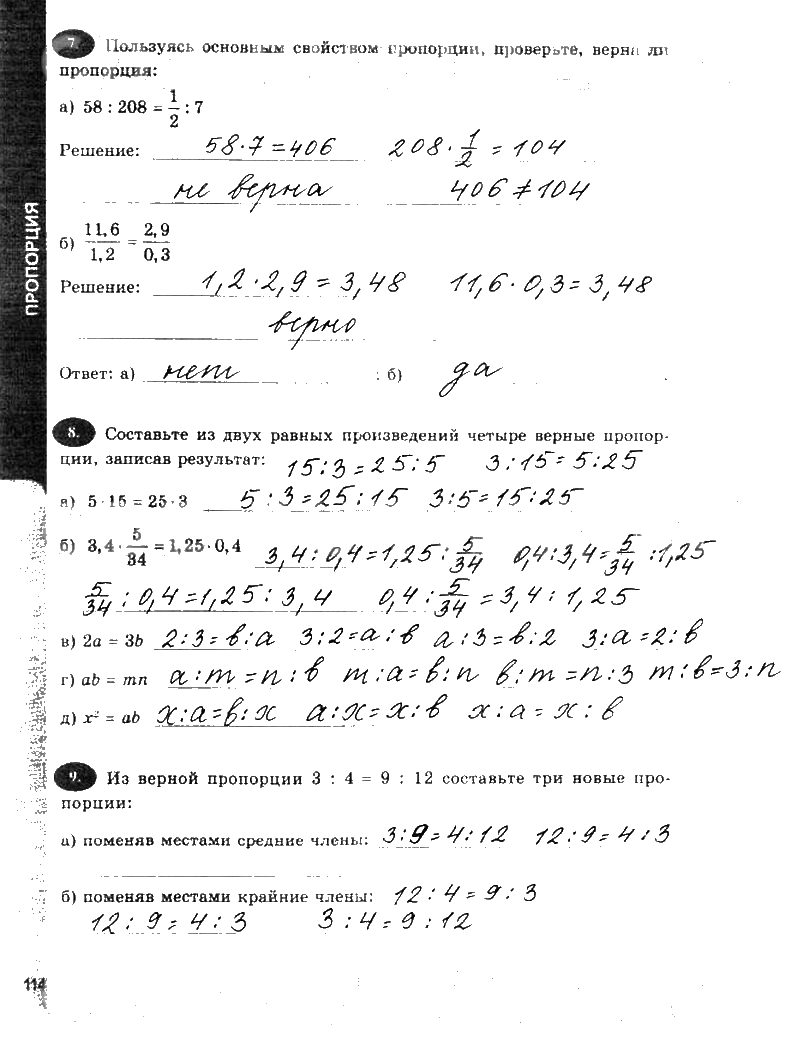 7. Пользуясь основным свойством пропорции, проверьте, верна ли
пропорция:
а) 58 : 208 = 1/2 : 7
Решение: 58·7=406 208·1/2=104
не верна 406≠104
ПРОПОРЦИЯ
б) 11,6/1,2 = 2,9/0,3
Решение: 1,2·2,9=3,48 11,6·0,3=3,48
верно
Ответ: а) нет ; б) да .
8. Составьте из двух равных произведений четыре верные пропор-
ции, записав результат: 15:3=25:5 3:15=5:25
а) 5·15 = 25·3 5:3=25:15 3:5=15:25
б) 3,4·5/34 = 1,25·0,4 3,4:0,4=1,25:5/34 0,4:3,4=5/34:1,25
5/34:0,4=1,25:3,4 0,4:5/34=3,4:1,25
в) 2a = 3b 2:3=b:a 3:2=a:b a:3=b:2 3:a=2:b
г) ab = mn a:m=n:b m:a=b:n b:m=n:3 m:b=3:n
д) x² = ab x:a=b:x a:x=x:b x:a=x:b
9. Из верной пропорции 3 : 4 = 9 : 12 составьте три новые про-
порции:
а) поменяв местами средние члены: 3:9=4:12 12:9=4:3
б) поменяв местами крайние члены: 12:4=9:3
12:9=4:3 3:4=9:12
114